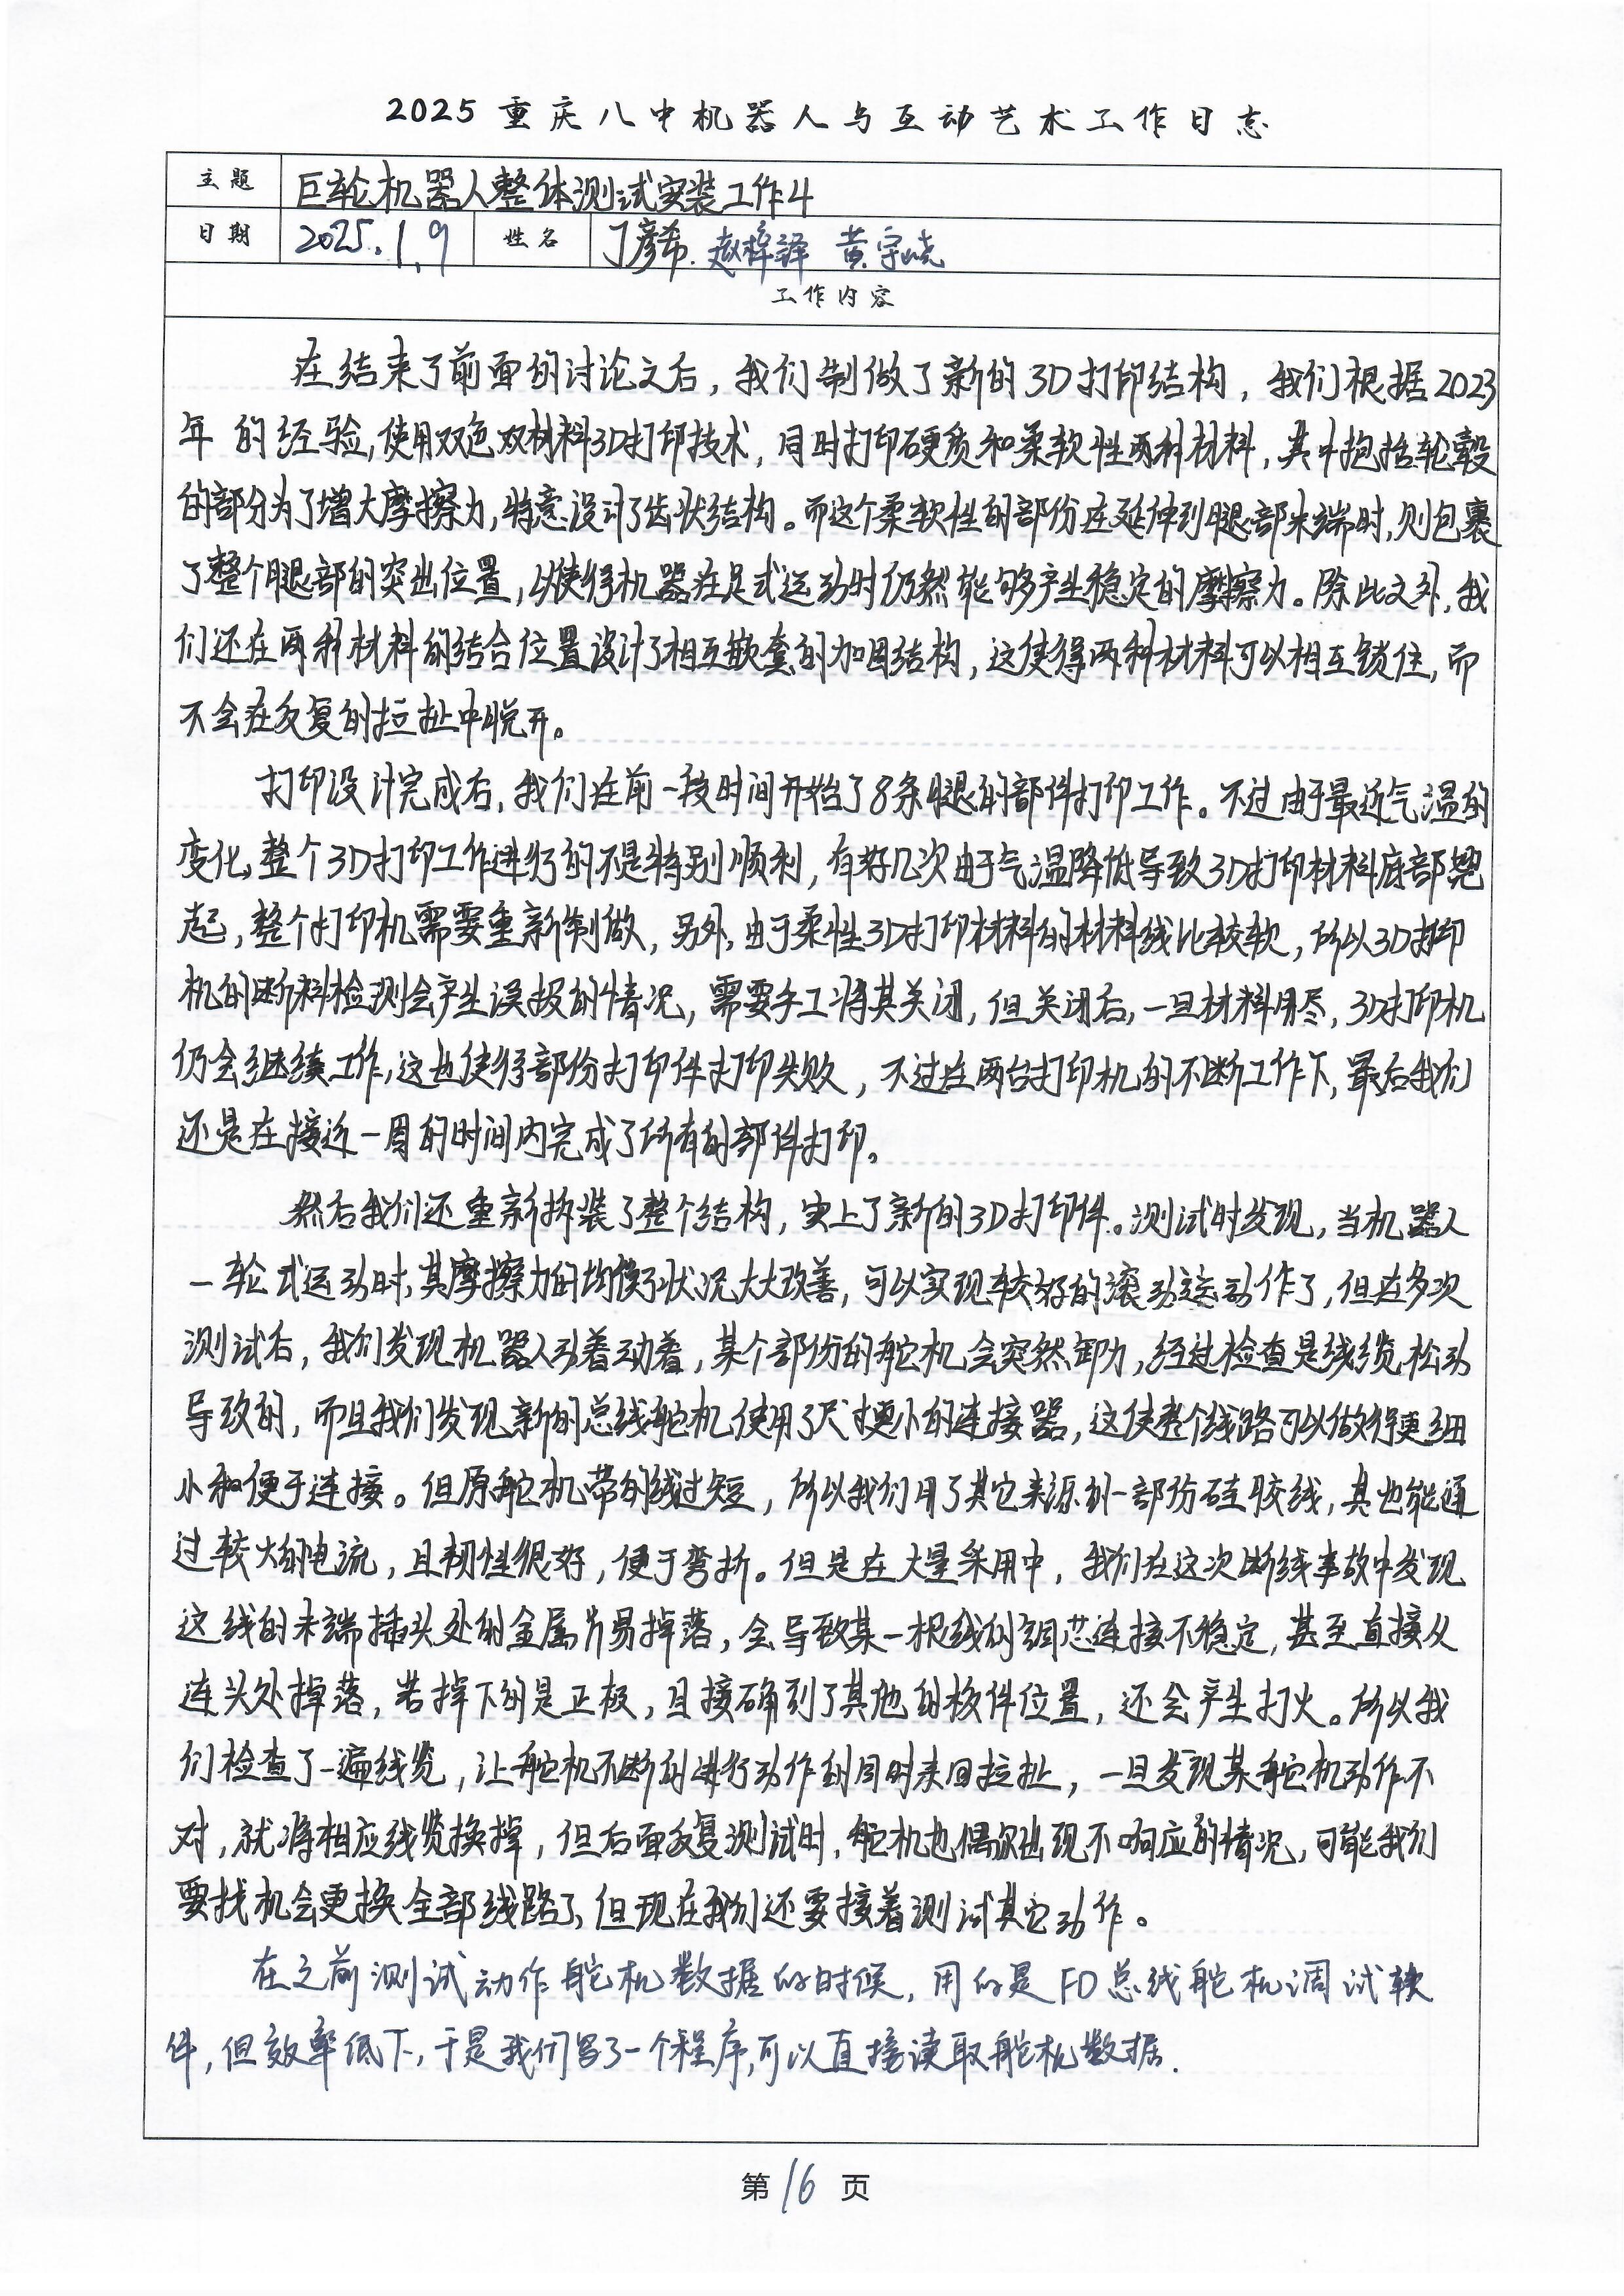 2025重庆八中机器人与互动艺术工作日志
主题 巨轮机器人整体测试安装工作4
日期 2025.1.9 姓名 丁彦希.赵梓译 黄宇峣
工作内容
在结束了前面的讨论之后，我们制做了新的3D打印结构，我们根据2023
年的经验，使用双色双材料3D打印技术，同时打印硬质和柔软性两种材料，其中抱括轮毂
的部分为了增大摩擦力，特意设计了齿状结构。而这个柔软性的部份在延伸到腿部末端时，则包裹
了整个腿部的突出位置，以使得机器在足式运动时仍然能够产生稳定的摩擦力。除此之外，我
们还在两种材料的结合位置设计了相互嵌套的加固结构，这使得两种材料可以相互锁住，而
不会在反复的拉扯中脱开。
打印设计完成后，我们在前一段时间开始了8条腿的部件打印工作。不过由于最近气温的
变化，整个3D打印工作进行的不是特别顺利，有好几次由于气温降低导致3D打印材料底部翘
起，整个打印机需要重新制做，另外，由于柔性3D打印材料的材料线比较软，所以3D打印
机的断料检测会产生误报的情况，需要手工将其关闭，但关闭后，一旦材料用尽，3D打印机
仍会继续工作，这也使得部份打印件打印失败，不过在两台打印机的不断工作下，最后我们
还是在接近一周的时间内完成了所有的部件打印。
然后我们还重新拆装了整个结构，安上了新的3D打印件。测试时发现，当机器人
一轮式运动时，其摩擦力的均衡状况大大改善，可以实现较好的滚动运动作了，但在多次
测试后，我们发现机器人动着动着，某个部份的舵机会突然卸力，经过检查是线缆松动
导致的，而且我们发现新的总线舵机使用了尺寸更小的连接器，这使整个线路可以做得更细
小和便于连接。但原舵机带的线过短，所以我们用了其它来源的一部份硅胶线，其也能通
过较大的电流，且韧性很好，便于弯折。但是在大量采用中，我们在这次断线事故中发现
这线的末端插头处的金属片易掉落，会导致某一根线的铜芯连接不稳定，甚至直接从
连头处掉落，若掉下的是正极，且接确到了其他的板件位置，还会产生打火。所以我
们检查了一遍线缆，让舵机不断的进行动作的同时来回拉扯，一旦发现某舵机动作不
对，就将相应线缆换掉，但后面反复测试时，舵机也偶尔出现不响应的情况，可能我们
要找机会更换全部线路了，但现在我们还要接着测试其它动作。
在之前测试动作舵机数据的时候，用的是FD总线舵机调试软
件，但效率低下，于是我们写了一个程序，可以直接读取舵机数据.
第16页